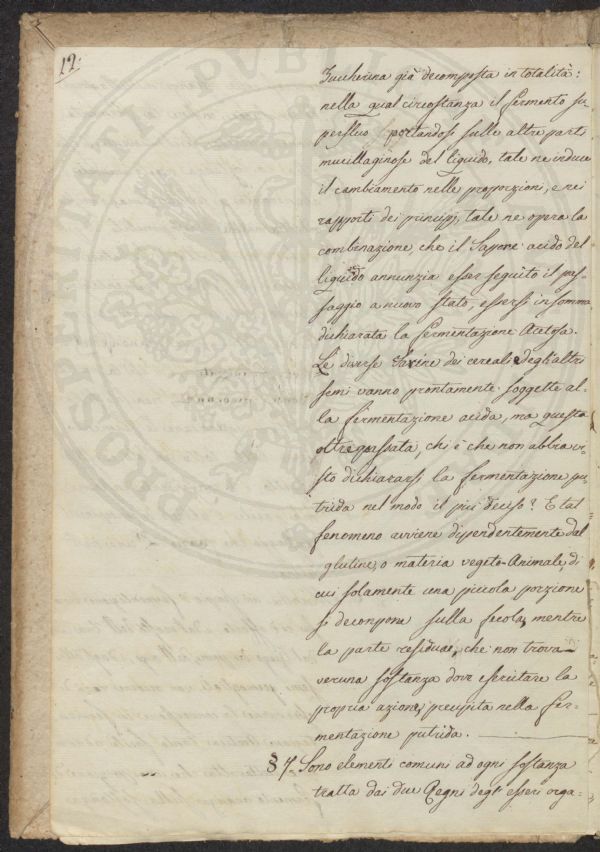 12.
Zuccherina già decomposta in totalità:
nella qual circostanza il fermento su-
perfluo portandosi sulle altre parti
mucillaginose del liquido, tale ne induce
il cambiamento nelle proporzioni, e nei
rapporti dei principj, tale ne opera la
combinazione, che il Sapore acido del
liquido annunzia esser seguito il pas-
saggio a nuovo stato, essersi in somma
dichiarata la fermentazione Acetosa.
Le diverse farine dei cereali e degli altri
semi vanno prontamente soggette al-
la fermentazione acida, ma questa
oltrepassata, chi è che non abbia vi-
sto dichiararsi la fermentazione pu-
trida nel modo il più deciso? E tal
fenomeno avviene dipendentemente dal
glutine, o materia vegeto-Animale, di
cui solamente una piccola porzione
si decompone sulla fecola, mentre
la parte residuae, che non trova
veruna sostanza dove esercitare la
propria azione, precipita nella fer-
mentazione putrida.
§ 7. Sono elementi comuni ad ogni sostanza
tratta dai due Regni degli esseri orga-